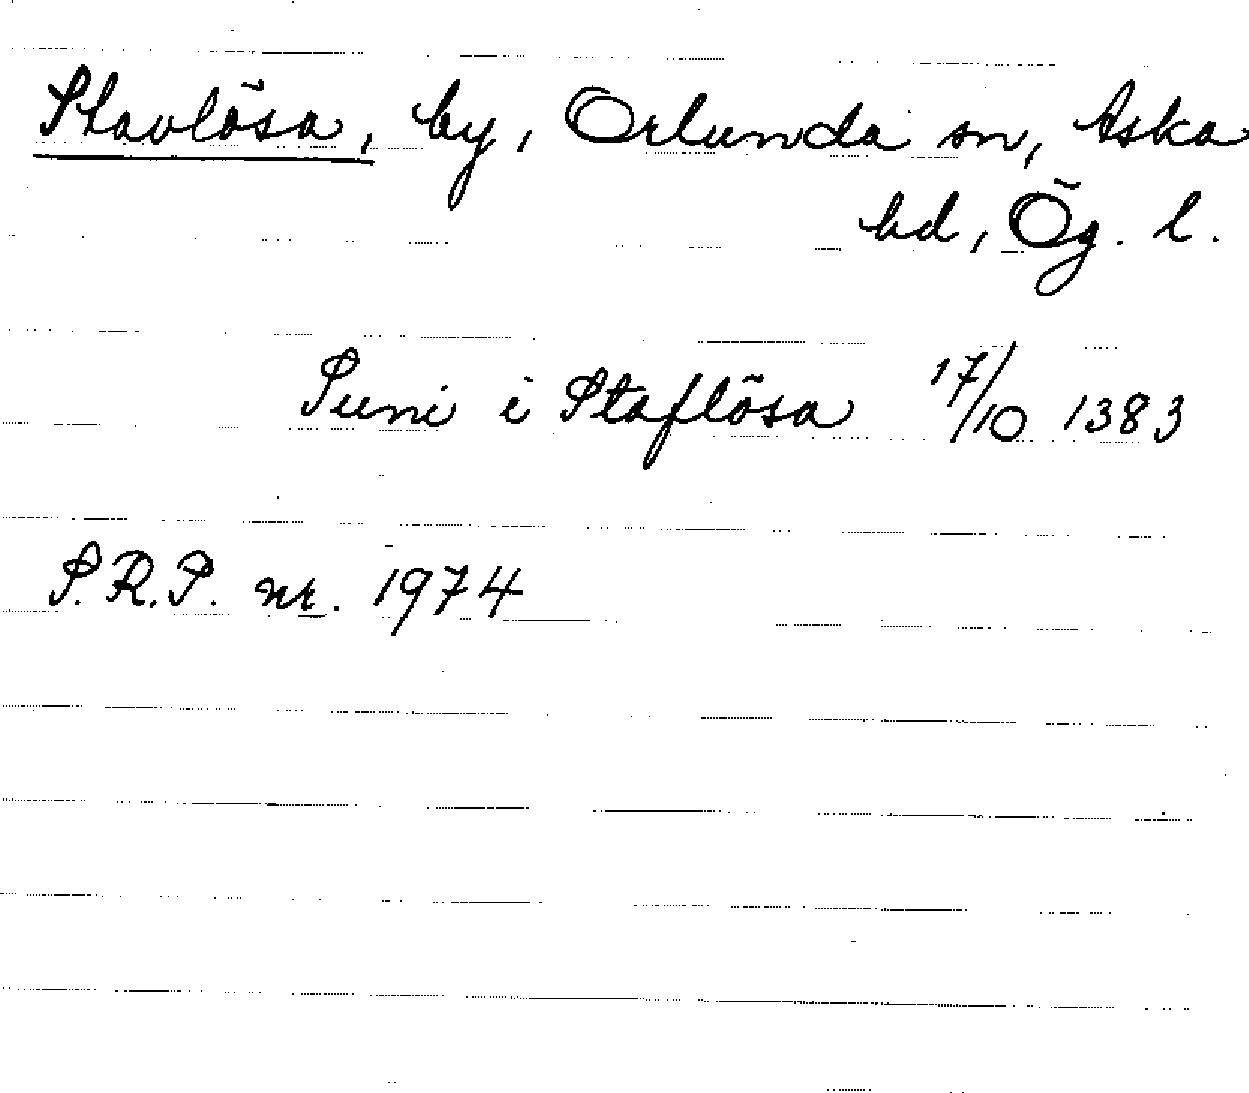 Stavlösa, by, Orlunda sn, Aska
hd, Ög. l.
Suni i Staflösa 17/10 1383
S.R.P. nr. 1974